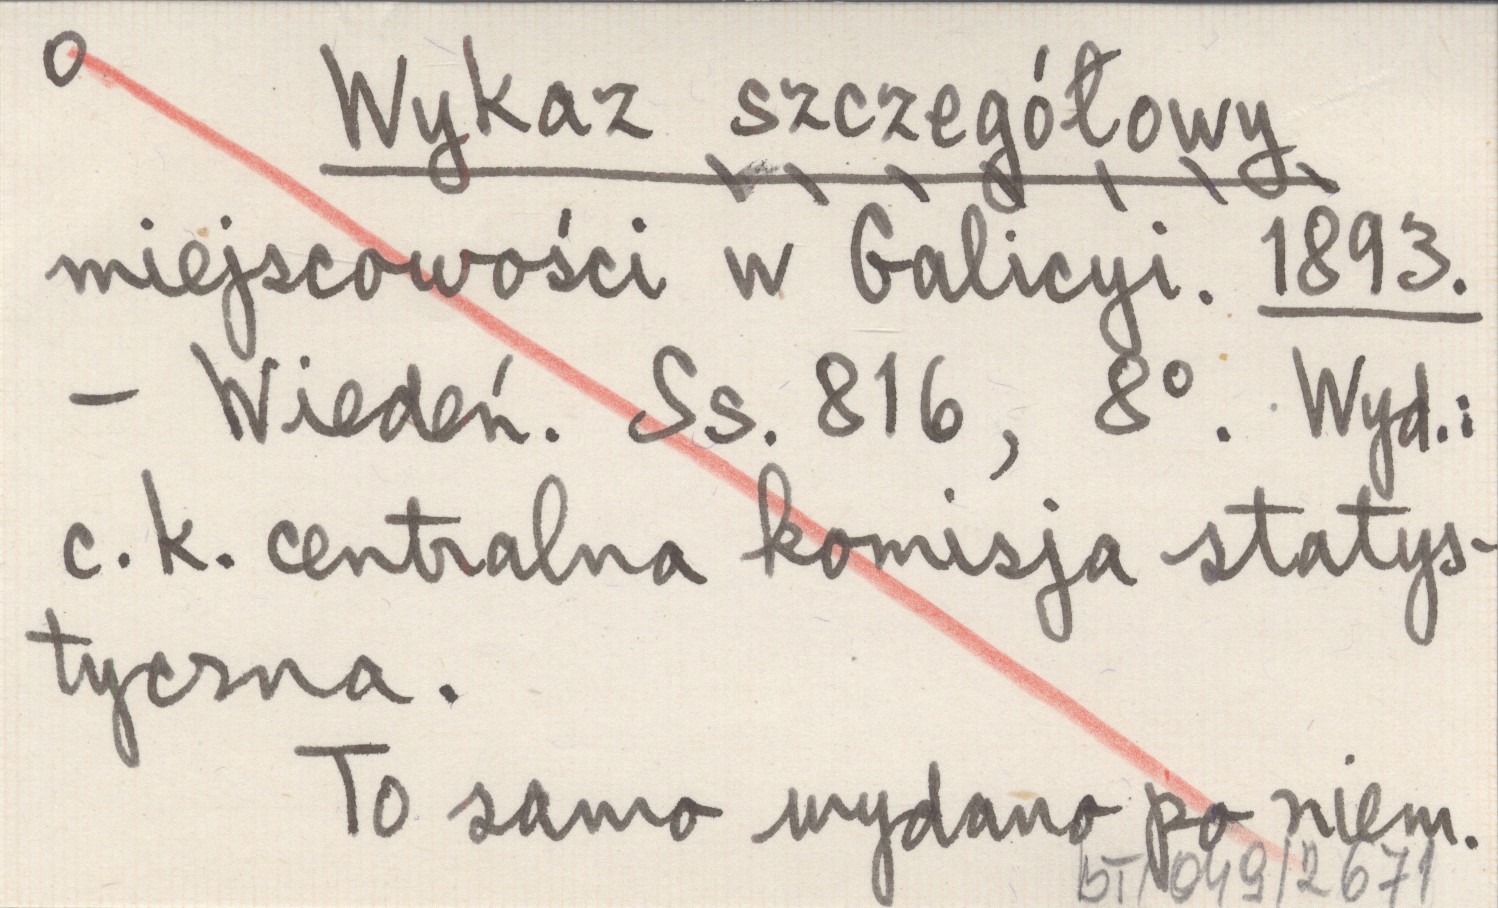 O
Wykaz szczegółowy
miejscowości w Galicyi. 1893.
– Wiedeń. Ss. 816, 8°. Wyd.:
c. k. centralna komisja statys-
tyczna.
To samo wydano po niem.
bT/049/2671